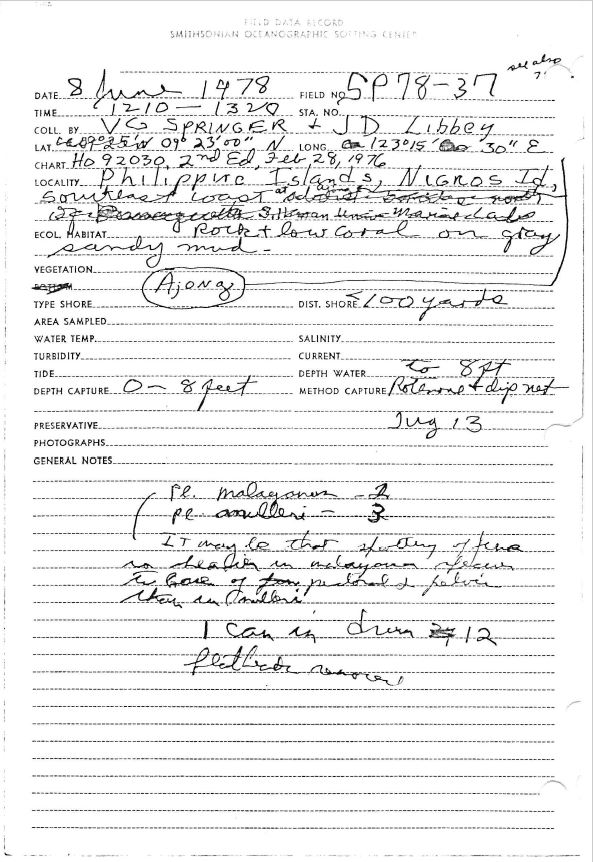 FIELD DATA RECORD
SMITHSONIAN OCEANOGRAPHIC SORTING CENTER
see also
DATE 8 June 1978 FIELD NO. SP78-37
TIME 1210 — 1320 STA. NO.
COLL. BY VG SPRINGER + JD Libbey
LAT. 09° 23' 00" N LONG. 123° 15' 30" E
CHART Ho 92030, 2nd Ed, Feb 28, 1976
LOCALITY Philippine Islands, NIGROS Id,
Southeast coast at
ECOL. HABITAT Rock + low coral on gray
sandy mud -
VEGETATION
BOTTOM Ajong
TYPE SHORE DIST. SHORE <100 yards
AREA SAMPLED
WATER TEMP. SALINITY
TURBIDITY CURRENT
TIDE DEPTH WATER to 8 ft
DEPTH CAPTURE 0 - 8 feet METHOD CAPTURE Rotenone + dip net
Jug 13
PRESERVATIVE
PHOTOGRAPHS
GENERAL NOTES
pe. - 2
pe. - 3
It may be that spotting of fins
is heavier in
to base of pectoral & pelvic
than in
1 can in drum 12